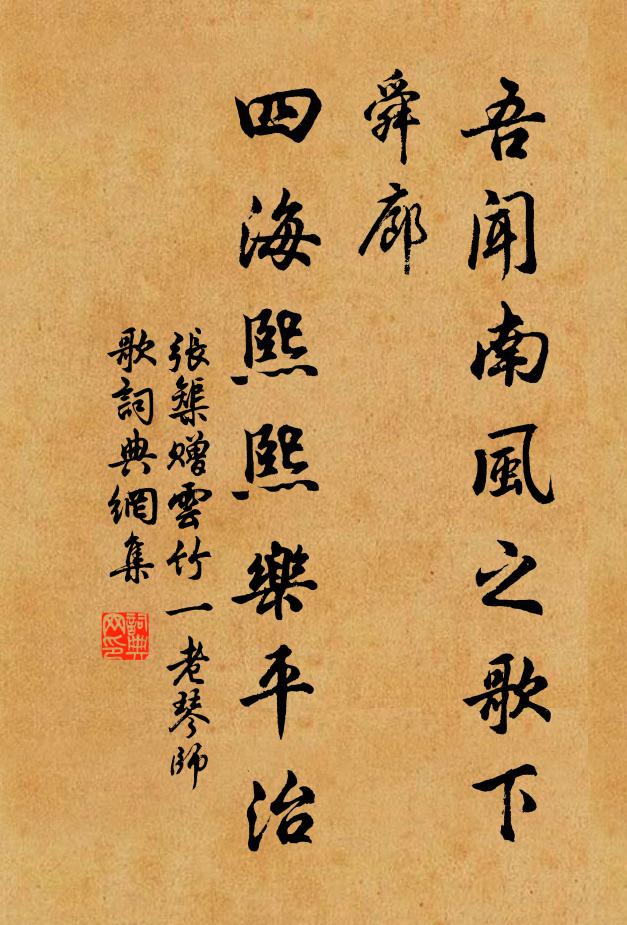 吾聞南風之歌下
舜廊
四海熙熙樂平治
張榘贈雲竹一老琴師
歌詞典網集
詞典
网印